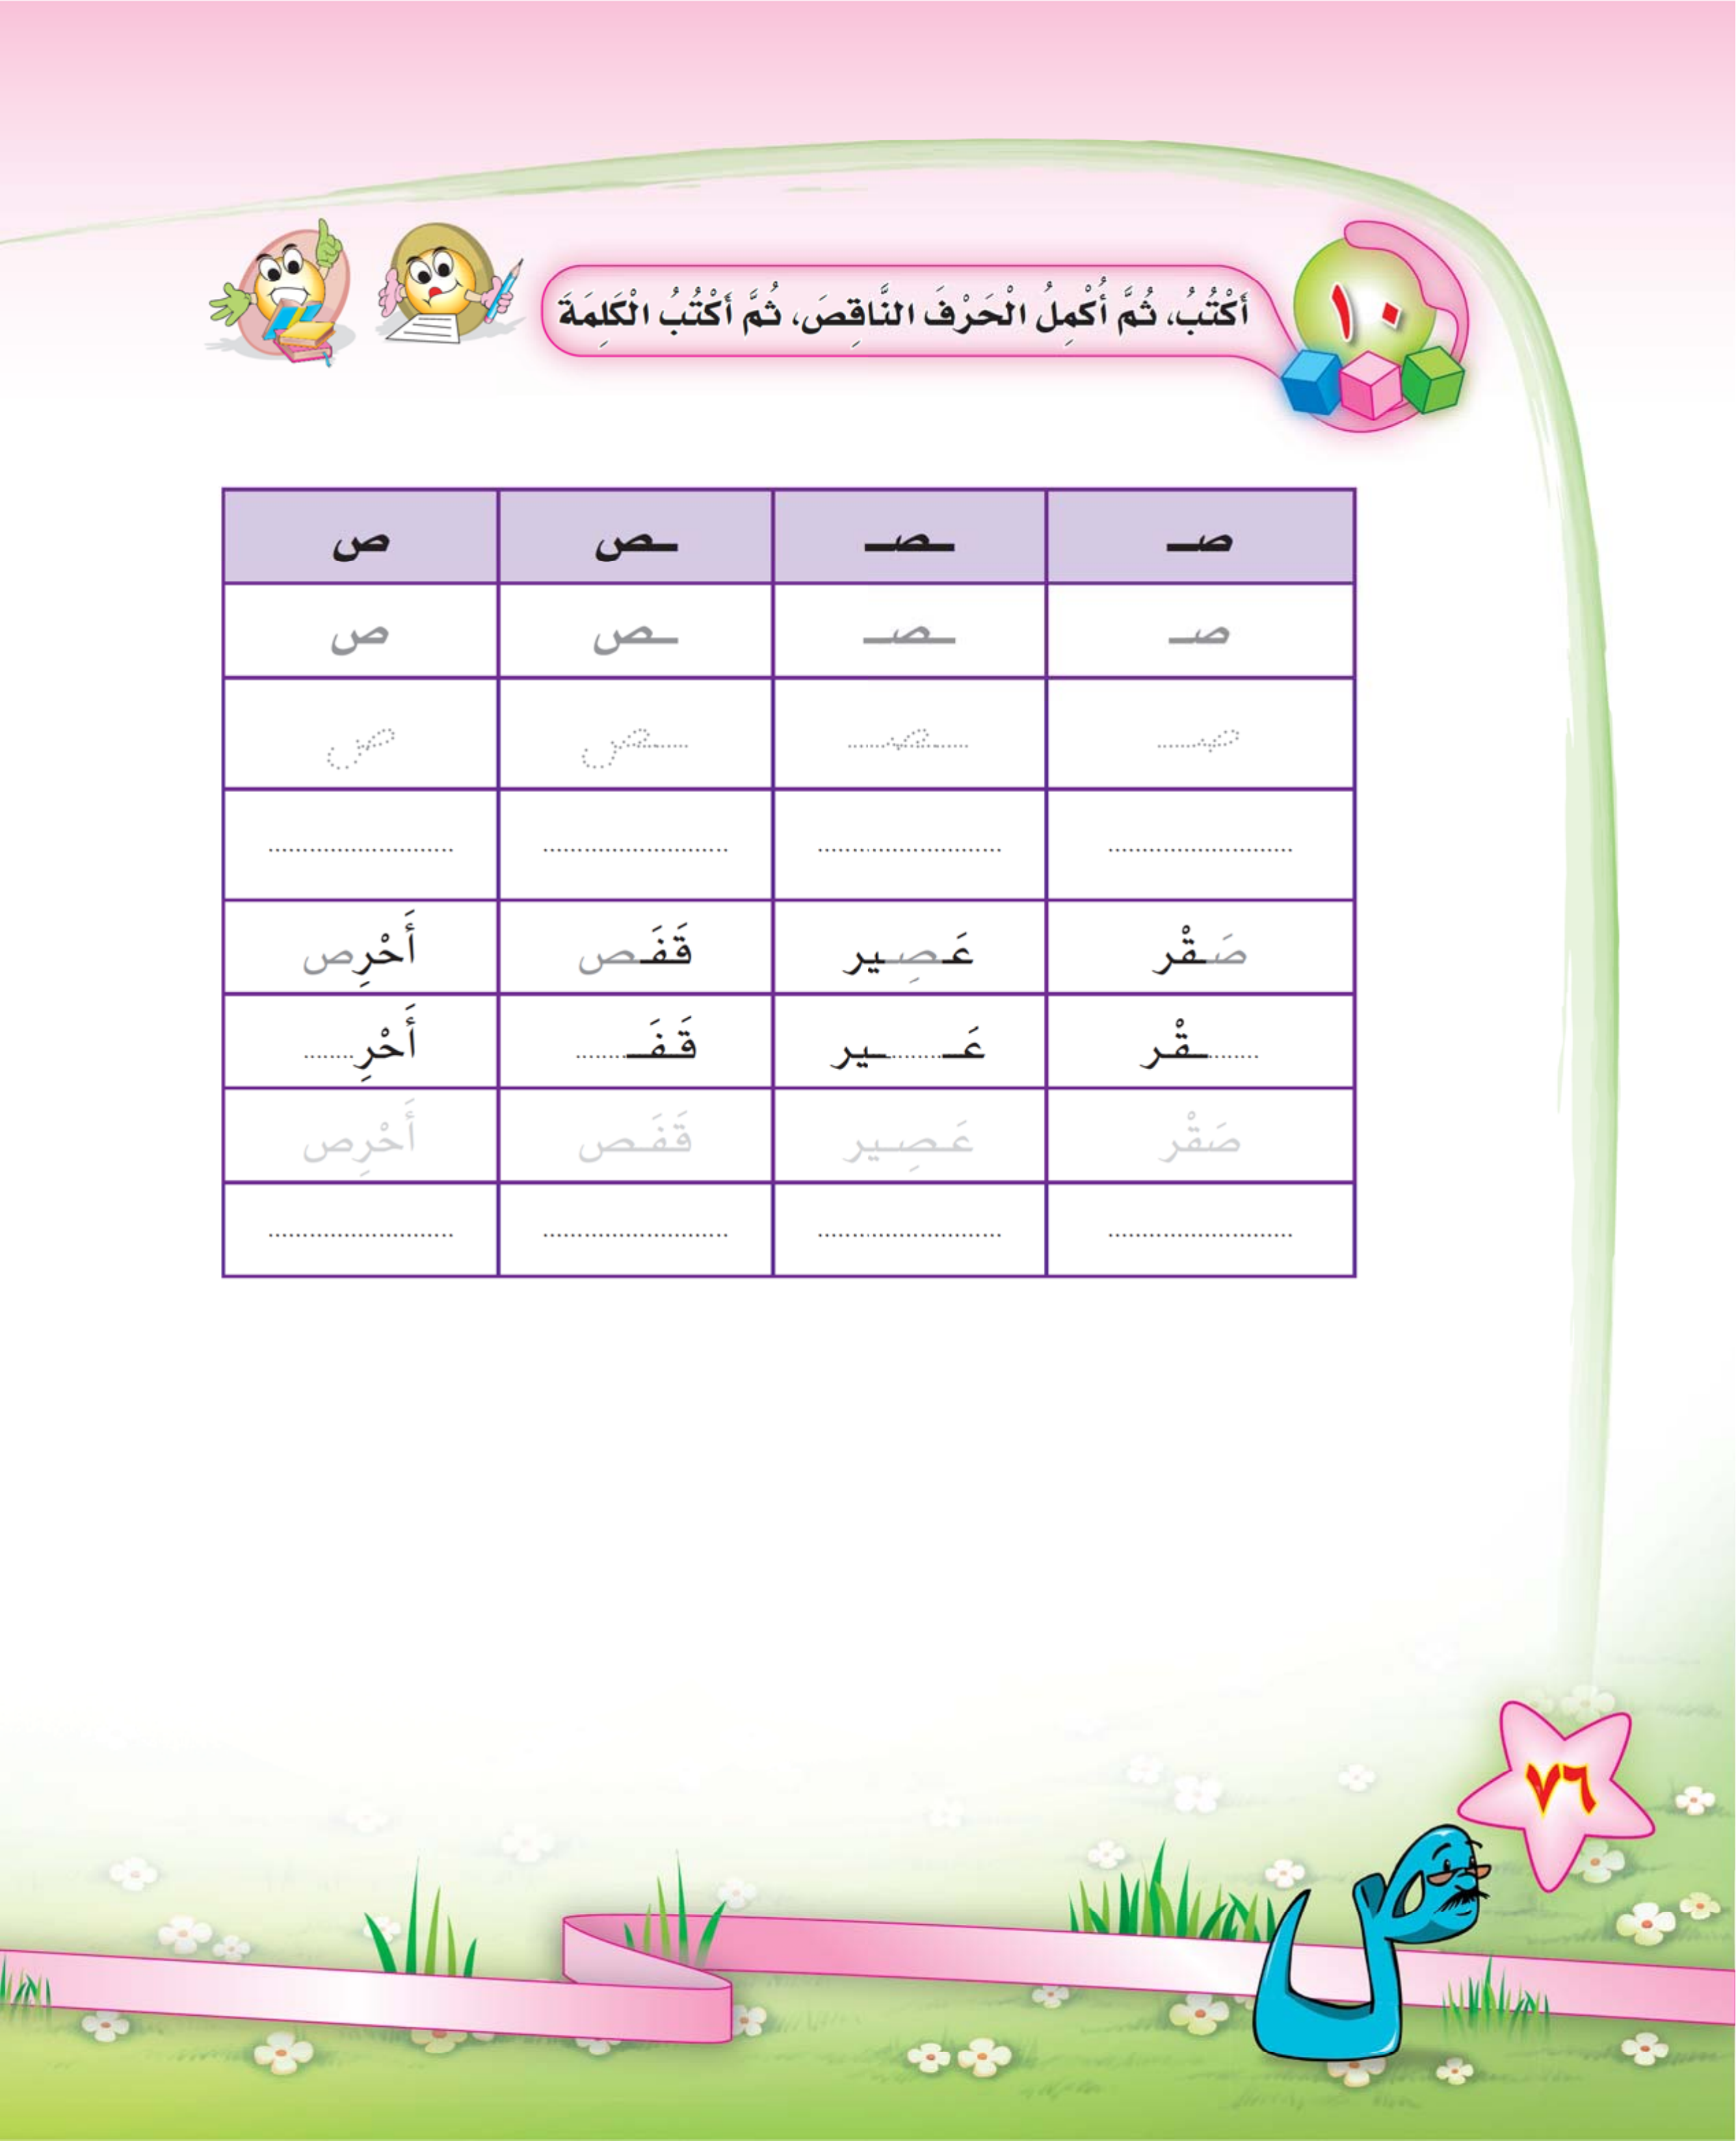 ١٠
أَكْتُبُ، ثُمَّ أُكْمِلُ الْحَرْفَ النَّاقِصَ، ثُمَّ أَكْتُبُ الْكَلِمَةَ
صـ ـصـ ـص ص
صـ ـصـ ـص ص
صـ ـصـ ـص ص
.......................... .......................... .......................... ..........................
صَـقْر عَـصِـير قَفَـص أَحْرِص
.......ـقْر عَـ.......ـير قَفَـ....... أَحْرِ.......
صَقْر عَـصِـير قَفَـص أَحْرِص
.......................... .......................... .......................... ..........................
٧٦
ص